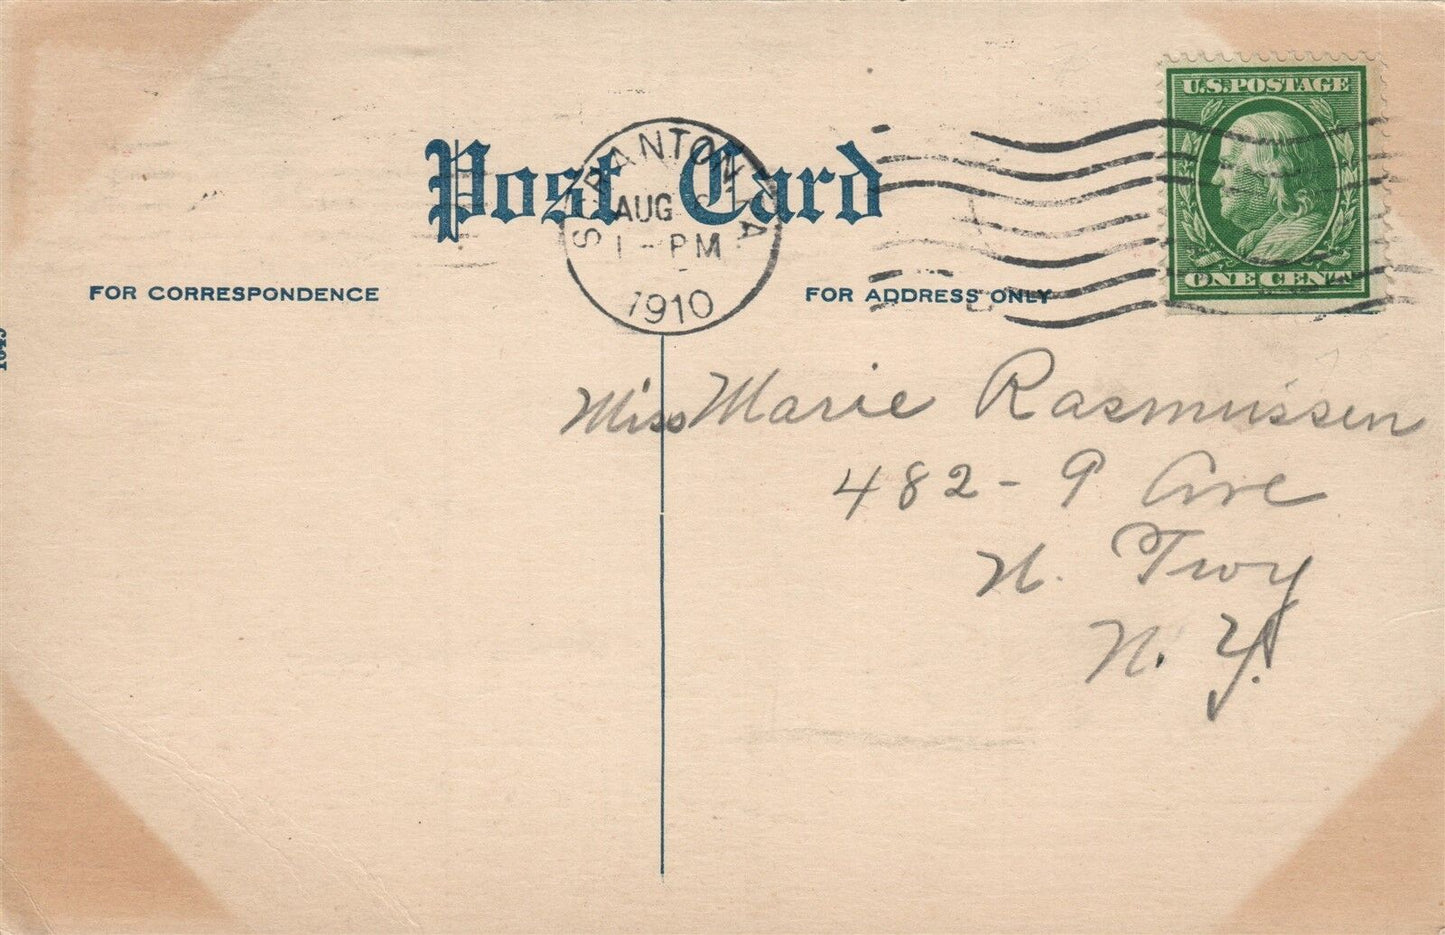 U.S. POSTAGE
ONE CENT
Post Card
SCRANTON PA
AUG
1 - PM
1910
FOR CORRESPONDENCE
FOR ADDRESS ONLY
Miss Marie Rasmussen
482 - 9 Ave
N. Troy
N. Y.